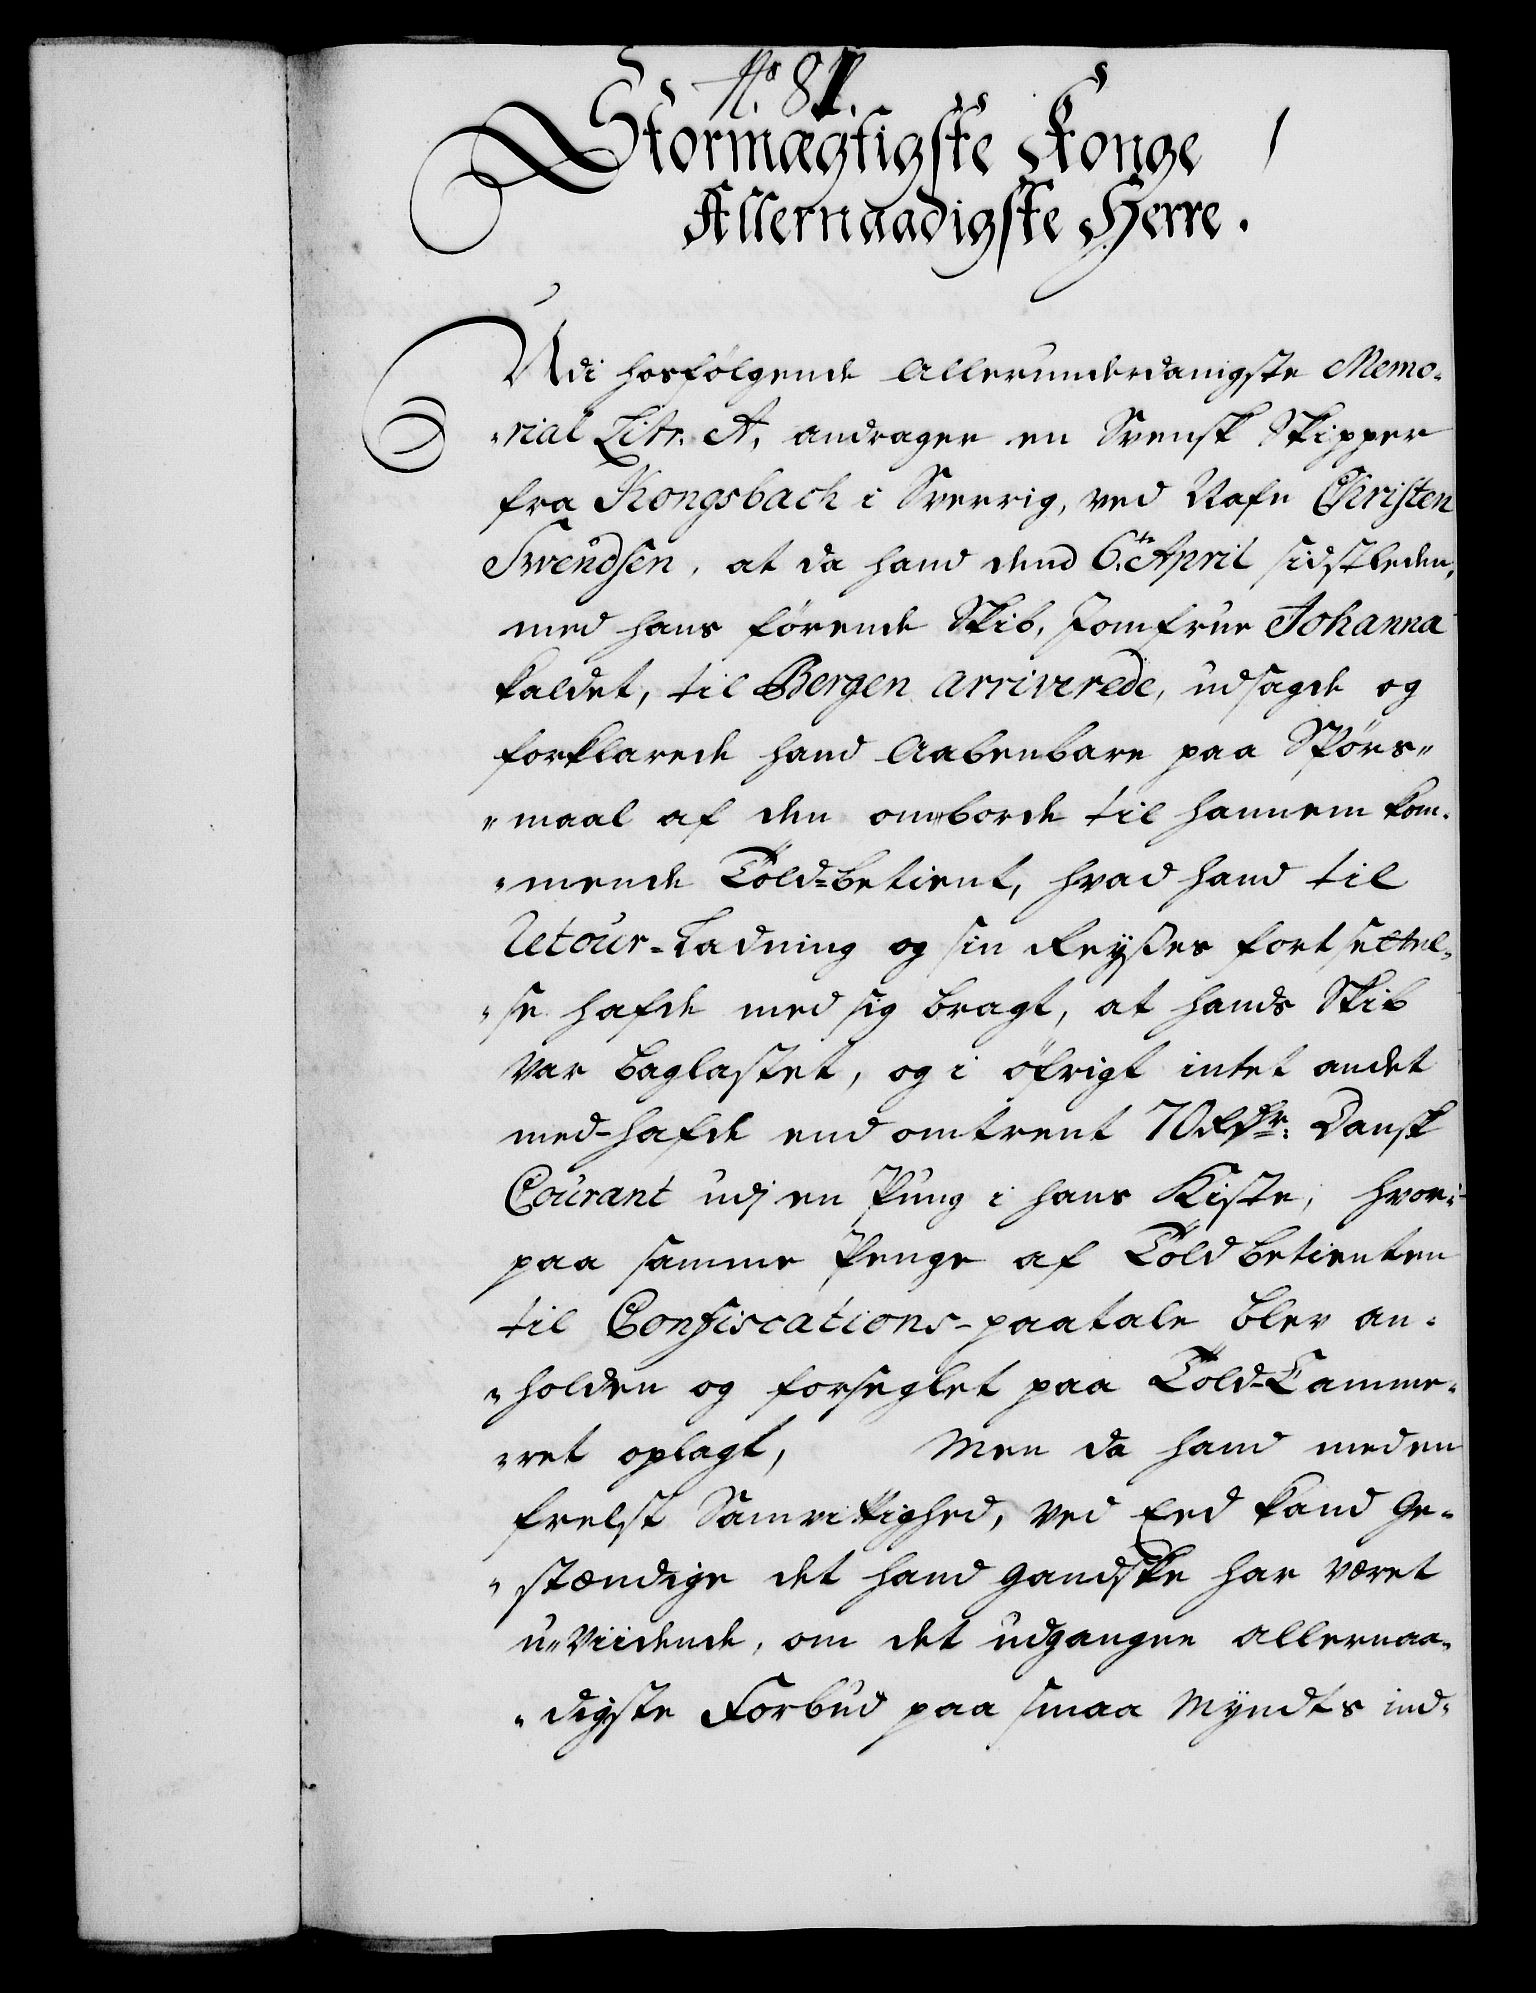 No. 81.
Stormægtigste Konge
Allernaadigste Herre.
Udi hosfølgende Allerunderdanigste Memo-
-rial Litr. A, andrager en Svensk Skipper
fra Kongsbach i Sverrig, ved Nafn Christen
Svendsen, at da hand dend 6te April sidstleden,
med hans førende Skib, Jomfrue Johanna
kaldet, til Bergen arriverede, udsagde og
forklarede hand Aabenbare paa Spørs-
-maal af den omborde til hannem kom-
-mende Told-betient, hvad hand til
Retour-Ladning og sin Reyßes fortsettel-
-se hafde med sig bragt, at hands Skib
var baglastet, og i øfrigt intet andet
med-hafde end omtrent 70 Rdr: Dansk
Courant udj en Pung i hans Kiste, hvor-
paa samme Penge af Told betienten
til Confiscations-paatale blev an-
-holden og forseglet paa Told-Camme-
-ret oplagt, Men da hand med en
frelst Samvittighed, ved Eed kand Ge-
-stændige det hand gandske har været
u-viidende, om det udgangne allernaa-
-digste Forbud paa smaa Myndts ind-